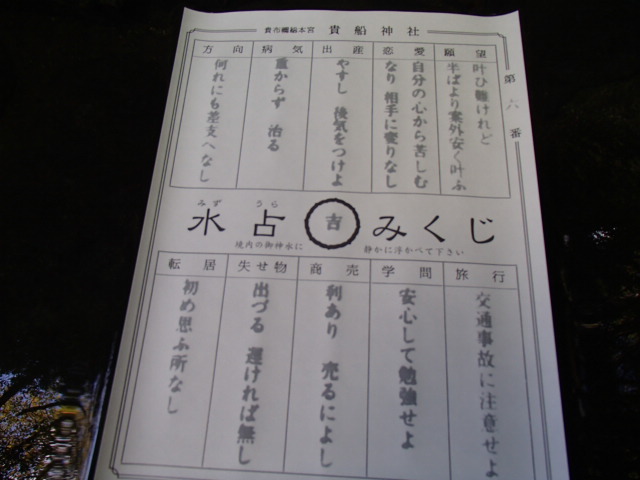 貴布禰総本宮 貴船神社
第六番
願望
叶ひ難けれど
半ばより案外安く叶ふ
恋愛
自分の心から苦しむ
なり 相手に変りなし
出産
やすし 後気をつけよ
病気
重からず 治る
方向
何れにも差支へなし
みず うら
水占 吉 みくじ
境内の御神水に 静かに浮かべて下さい
旅行
交通事故に注意せよ
学問
安心して勉強せよ
商売
利あり 売るによし
失せ物
出づる 遅ければ無し
転居
初め思ふ所なし